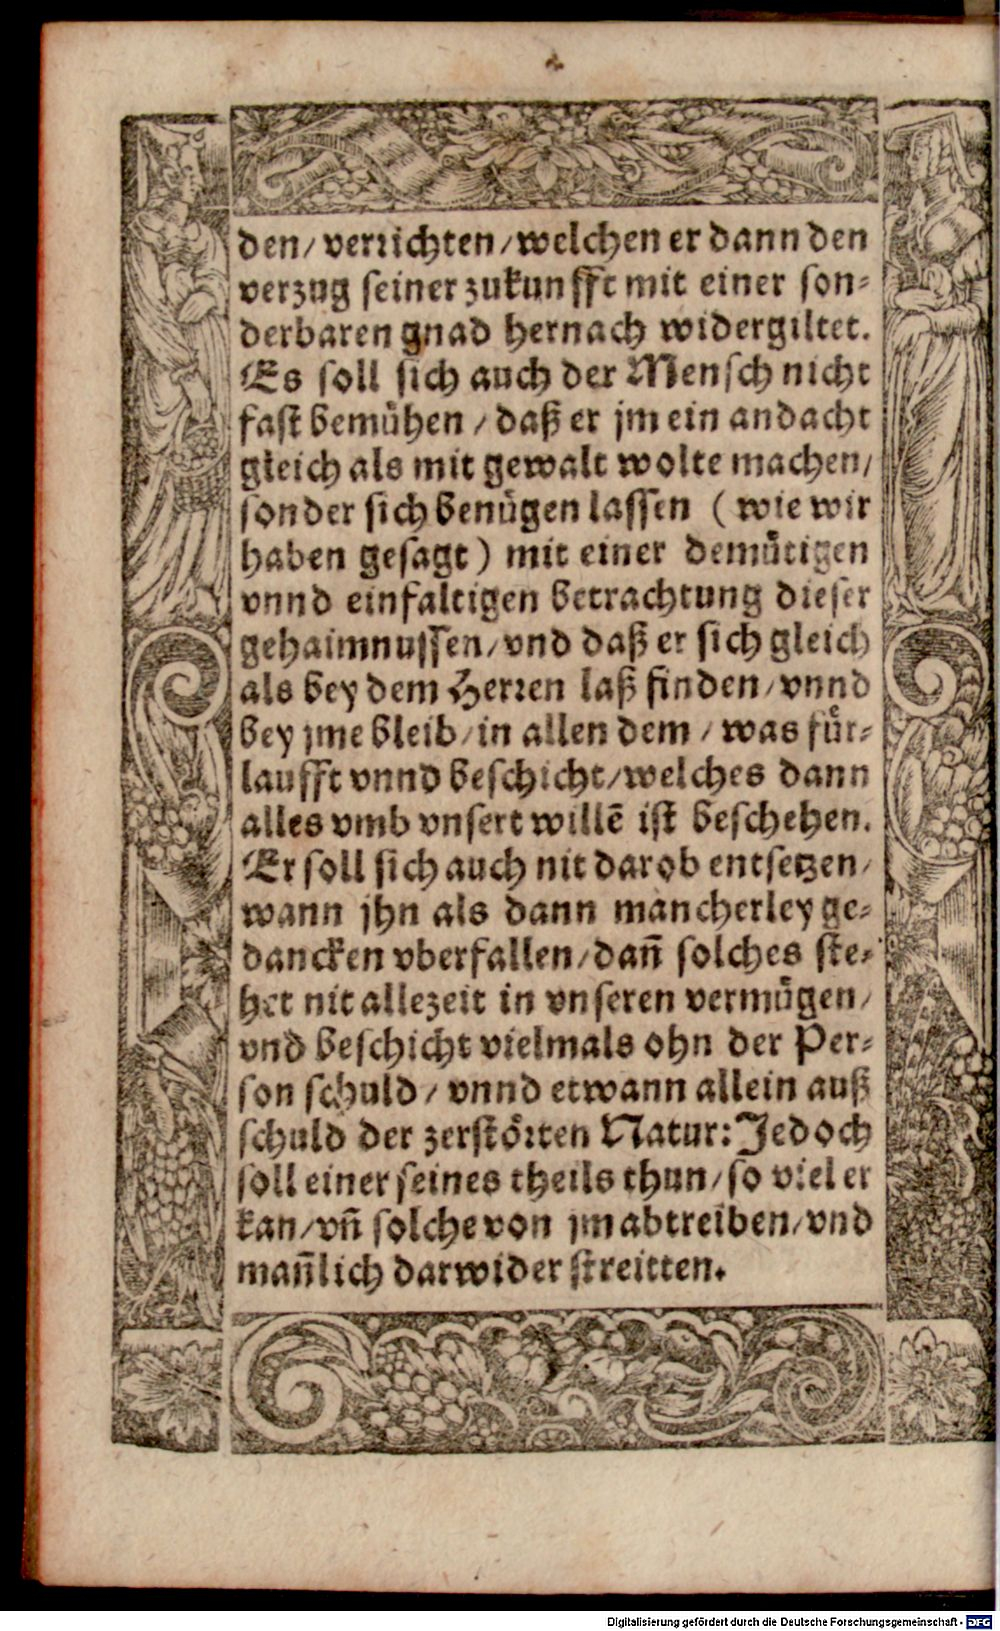 den/ verrichten/ welchen er dann den
verzug seiner zukunfft mit einer son⸗
derbaren gnad hernach widergiltet.
Es soll sich auch der Mensch nicht
fast bemühen / daß er jm ein andacht
gleich als mit gewalt wolte machen/
sonder sich benügen lassen ( wie wir
haben gesagt ) mit einer demütigen
vnnd einfaltigen betrachtung dieser
gehaimnussen/ vnd daß er sich gleich
als bey dem Herren laß finden/ vnnd
bey jme bleib/ in allen dem / was für⸗
laufft vnnd beschicht/ welches dann
alles vmb vnsert willē ist beschehen.
Er soll sich auch nit darob entsetzen/
wann jhn als dann mancherley ge⸗
dancken vberfallen/ dañ solches ste⸗
het nit allezeit in vnseren vermügen/
vnd beschicht vielmals ohn der Per⸗
son schuld / vnnd etwann allein auß
schuld der zerstörten Natur: Jedoch
soll einer seines theils thun/ so viel er
kan/ vñ solche von jm abtreiben/ vnd
mañlich darwider streitten.
Digitalisierung gefördert durch die Deutsche Forschungsgemeinschaft - DFG